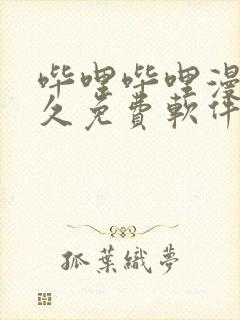 哔哩哔哩漫
久免費軟件
孤葉織夢